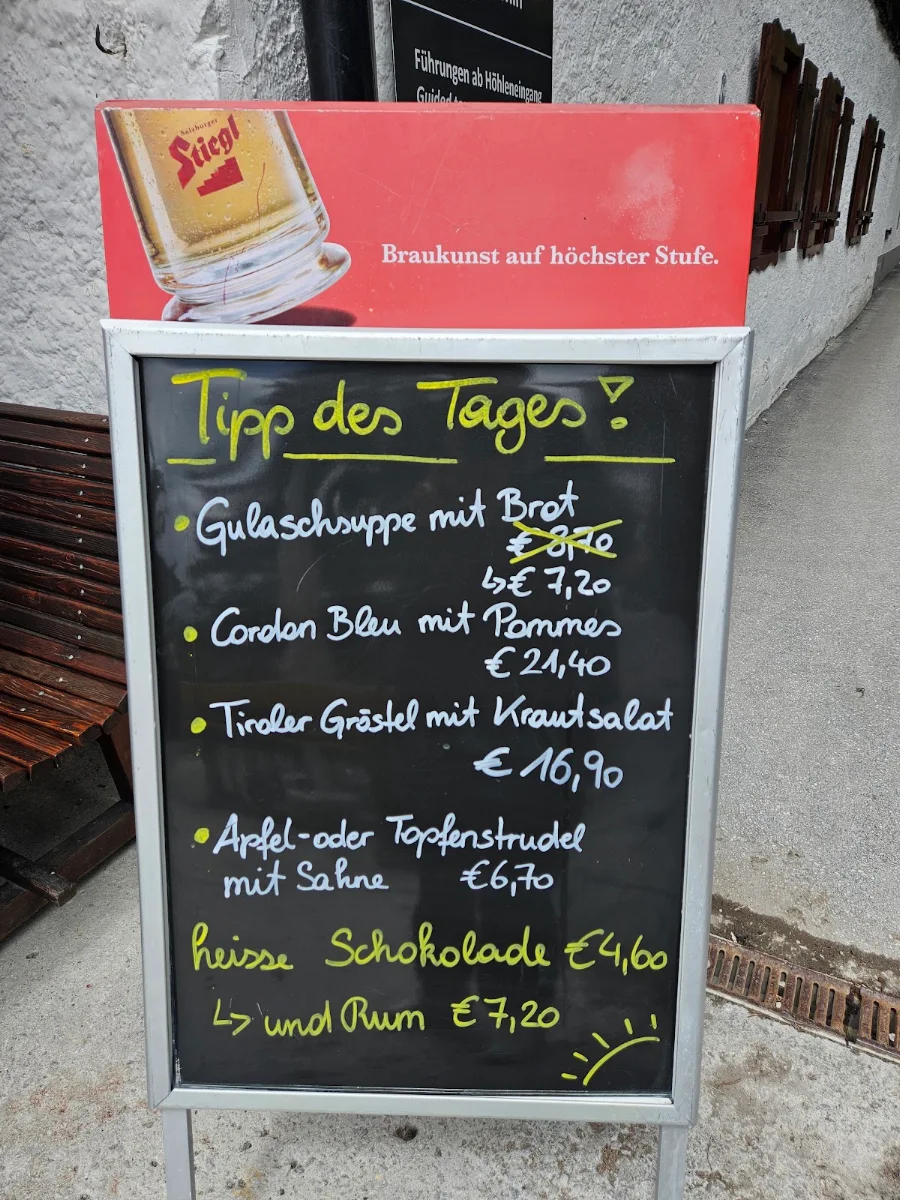 Führungen ab Höhleneingang
Guided
Salzburger
Stiegl
Braukunst auf höchster Stufe.
Tipp des Tages!
• Gulaschsuppe mit Brot
€ 8,70
↳ € 7,20
• Cordon Bleu mit Pommes
€ 21,40
• Tiroler Gröstel mit Krautsalat
€ 16,90
• Apfel- oder Topfenstrudel
mit Sahne €6,70
heisse Schokolade €4,60
↳ und Rum €7,20